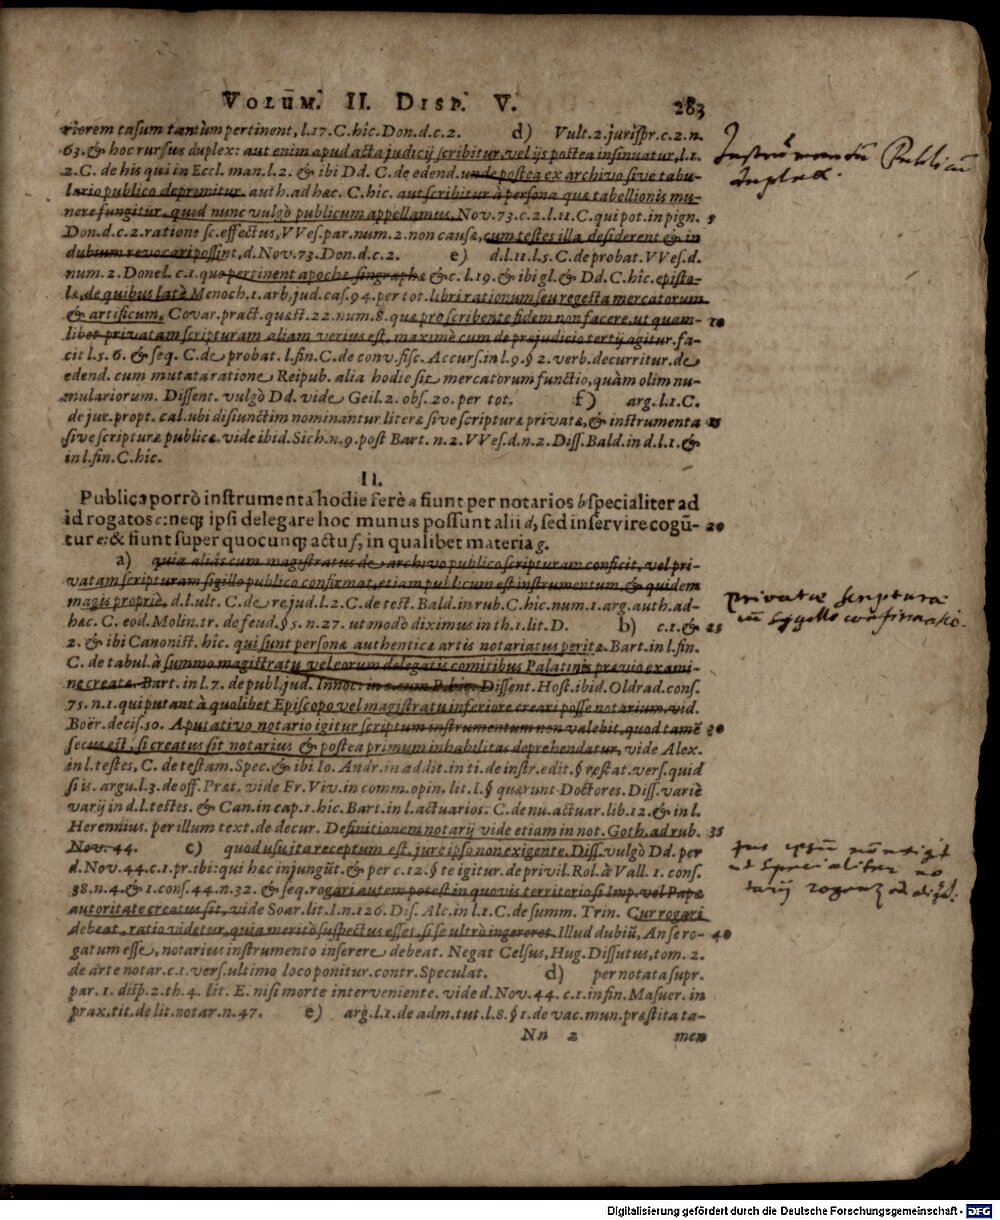 VOLUM. II. DISP. V. 283
riorem casum tantùm pertinent, l.17. C. hîc. Don. d. c. 2. d) Vult. 2. jurispr. c. 2. n.
63. & hoc rursus duplex: aut enim apud acta judicij scribitur, vel ijs postea insinuatur, l. 1.
2. C. de his qui in Eccl. man. l. 2. & ibi Dd. C. de edend. unde postea ex archivo sive tabu-
lario publico depromitur. auth. ad hæc. C. hic. aut scribitur à persona quæ tabellionis mu-
nere fungitur, quod nunc vulgò publicum appellamus, Nov. 73. c. 2. l. 11. C. qui pot. in pign. 5
Don. d. c. 2. ratione sc. effectus, VVes. par. num. 2. non causæ, cum testes illa desiderent & in
dubium revocari possint, d. Nov. 73. Don. d. c. 2. e) d. l. 11. l. 5. C. de probat. VVes. d.
num. 2. Donel. c. 1. quo pertinent apochæ singraphæ & c. l. 19. & ibi gl. & Dd. C. hic. episto-
læ, de quibus latè Menoch. 1. arb. jud. cas. 94. per tot. libri rationum seu regesta mercatorum
& artificum, Covar. pract. quæst. 22. num. 8. quæ pro scribente fidem non facere, ut quam- 10
libet privatam scripturam aliam verius est, maximè cum de præjudicio tertij agitur. fa-
cit l. 5. 6. & seq. C. de probat. l. fin. C. de conv. fisc. Accurs. in l. 9. § 2. verb. decurritur. de
edend. cum mutata ratione Reipub. alia hodie sit mercatorum functio, quàm olim nu-
mulariorum. Dissent. vulgò Dd. vide Geil. 2. obs. 20. per tot. f) arg. l. 1. C.
de jur. propt. cal. ubi disiunctim nominantur literæ sive scripturæ privatæ, & instrumenta 15
sive scripturæ publicæ. vide ibid. Sich. n. 9. post Bart. n. 2. VVes. d. n. 2. Diss. Bald. in d. l. 1. &
in l. fin. C. hic.
II.
Publica porrò instrumenta hodie ferè a fiunt per notarios b specialiter ad
id rogatos c: neq; ipsi delegare hoc munus possunt alii d, sed inservire cogū- 20
tur e: & fiunt super quocunq; actu f, in qualibet materia g.
a) quia aliàs cum magistratus de archivo publico scripturam conficit, vel pri-
vatam scripturam sigillo publico confirmat, etiam publicum est instrumentum, & quidem
magis propriè, d. l. ult. C. de re jud. l. 2. C. de test. Bald. in rub. C. hic. num. 1. arg. auth. ad-
hæc. C. eod. Molin. tr. de feud. § 5. n. 27. ut modò diximus in th. 1. lit. D. b) c. 1. & 25
2. & ibi Canonist. hic. qui sunt personæ authenticæ artis notariatus peritæ. Bart. in l. fin.
C. de tabul. à summo magistratu vel eorum delegatis comitibus Palatinis prævio exami-
ne creatæ. Bart. in l. 7. de publ. jud. Innoc. in c. cum P. hic. Dissent. Host. ibid. Oldrad. cons.
75. n. 1. qui putant à quolibet Episcopo vel magistratu inferiore creari posse notarium. vid.
Boër. decis. 50. A putativo notario igitur scriptum instrumentum non valebit, quod tamē 30
secus est, si creatus sit notarius & postea primum inhabilitas deprehendatur, vide Alex.
in l. testes, C. de testam. Spec. & ibi Io. Andr. in addit. in ti. de instr. edit. § restat. vers. quid
si is. argu. l. 3. de off. Præt. vide Fr. Viv. in comm. opin. lit. I. § quærunt Doctores. Diss. variè
varij in d. l. testes. & Can. in cap. 1. hic. Bart. in l. actuarios. C. de nu. actuar. lib. 12. & in l.
Herennius. per illum text. de decur. Definitionem notarij vide etiam in not. Goth. ad rub. 35
Nov. 44. c) quod usu ita receptum est, jure ipso non exigente. Diss. vulgò Dd. per
d. Nov. 44. c. 1. pr. ibi: qui hæc injungūt. & per c. 12. § te igitur. de privil. Rol. à Vall. 1. cons.
38. n. 4. & 1. cons. 44. n. 32. & seq. rogari autem potest in quovis territorio si Imp. vel Papæ
autoritate creatus sit, vide Soar. lit. I. n. 126. Dis. Alc. in l. 1. C. de summ. Trin. Cur rogari
debeat, ratio videtur, quia meritò suspectus esset, si se ultrò ingereret. Illud dubiū, An se ro- 40
gatum esse, notarius instrumento inserere debeat. Negat Celsus, Hug. Dissutus, tom. 2.
de arte notar. c. 1. vers. ultimo loco ponitur. contr. Speculat. d) per notata supr.
par. 1. disp. 2. th. 4. lit. E. nisi morte interveniente. vide d. Nov. 44. c. 1. in fin. Masuer. in
prax. tit. de lit. notar. n. 47. e) arg. l. 1. de adm. tut. l. 8. § 1. de vac. mun. præstita ta-
Nn 2 men
Instrumentū Publicū
duplex.
privatæ scriptura
sygillo confirmatio.
ut specialiter no
tarij